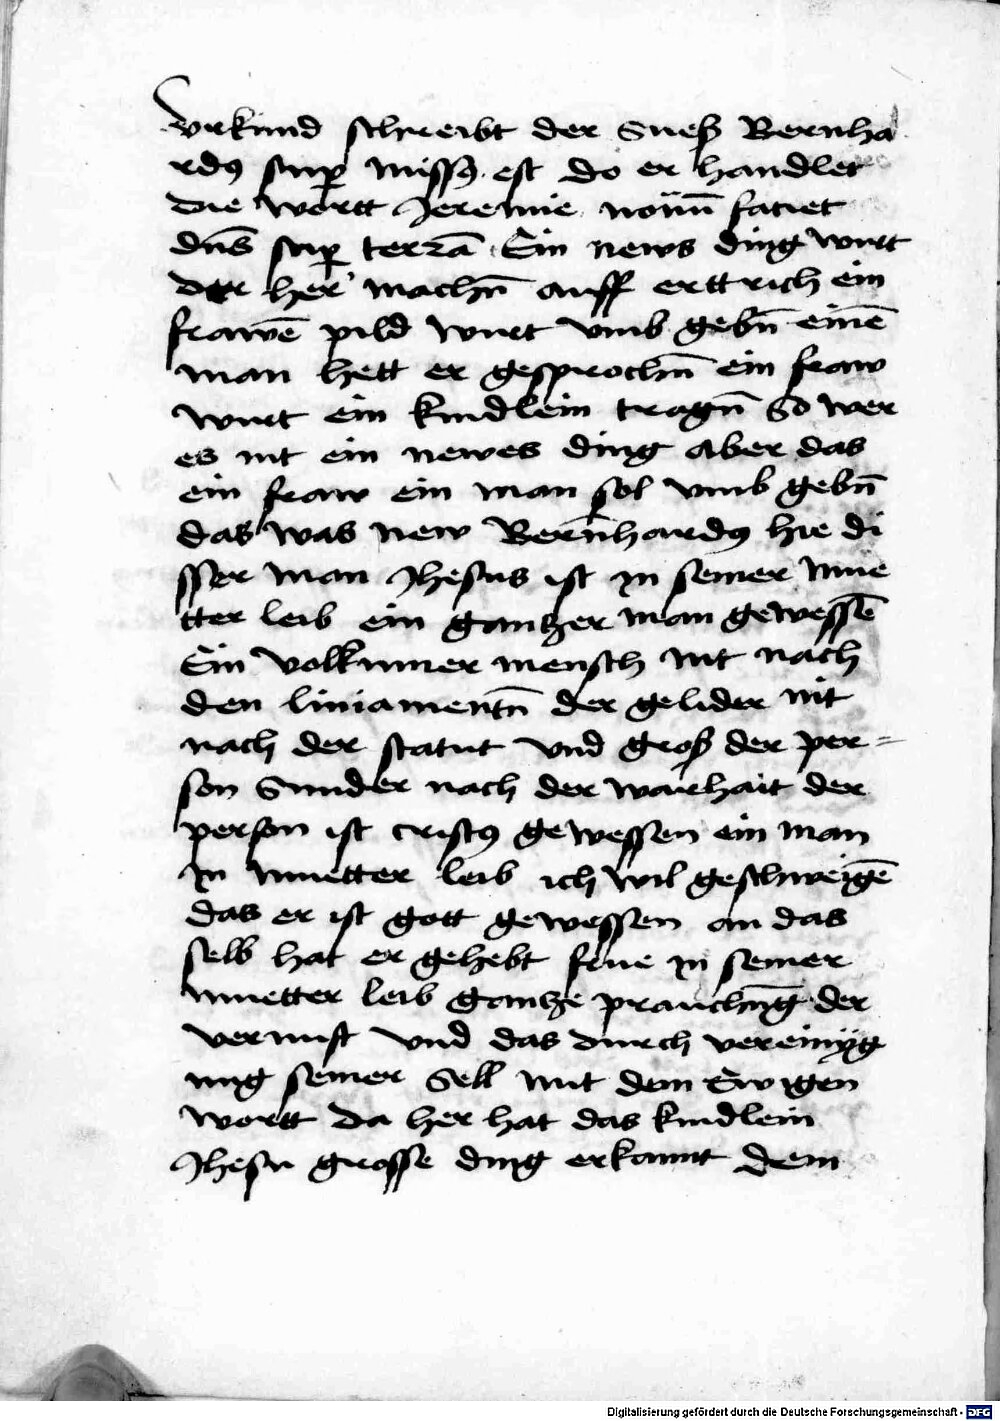 vrkund schreibt der Sueß Bernha
rdꝰ suꝑ missꝰ est do er handlet
die wortt Jeremie nouū faciet
dn̄s suꝑ terrā Ein news ding wurt
der her machn̄ auff erttrich ein
frawē pild wurt vmb gebn̄ einē
man hett er gesprochn̄ ein fraw
wurt ein kindlein tragn̄ So wer
es nit ein newes ding aber das
ein fraw ein man sol vmb gebn̄
das was new Bernhardꝰ hie di
sser man Jhesus ist jn seiner mue
tter leib ein gantzer man gewessē
Ein volkumer mensch nit nach
den liniamentn̄ der gelider nit
nach der statut vnd groß der per=
son Sunder nach der warhait der
person ist cristꝰ gewessen ein man
jn muetter leib ich wil geschweigē
das er ist gott gewessen an das
selb hat er gehebt frue jn seiner
muetter leib gantze prauchūg der
vernuft vnd das durch vereinÿg
ung seiner Sell mit dem Ewigen
wortt da her hat das kindlein
Jhesu grosse ding erkannt dem
Digitalisierung gefördert durch die Deutsche Forschungsgemeinschaft - DFG